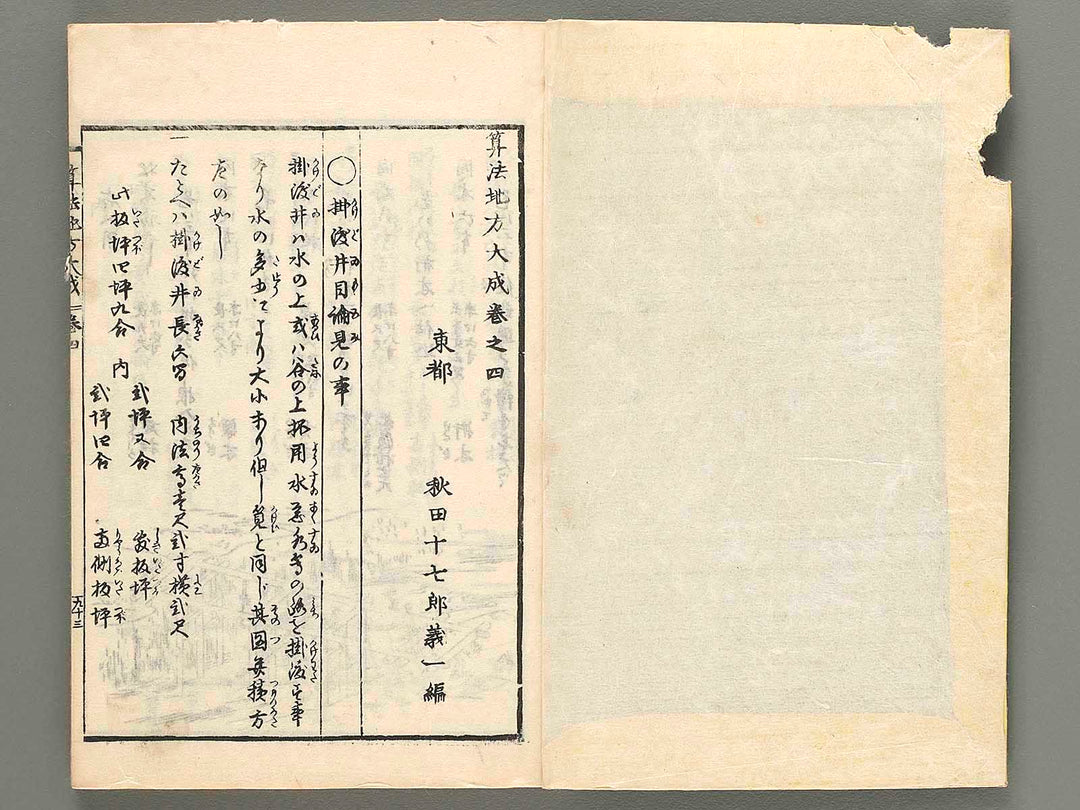 算法地方大成巻之四
東都 秋田十七郎義一編
○掛渡井目論見の事
掛渡井ハ水の上或ハ谷の上抔用水悪水等の路を掛渡す事
なり水の多少により大小あり但し筧と同じ其図并積方
左のめし
一たとへハ掛渡井長六間 内法高壱尺弐寸横弐尺
此板坪四坪九合 内 弐坪五合 敷板坪
弐坪四合 両側板坪
算法地方大成 巻四
九十三